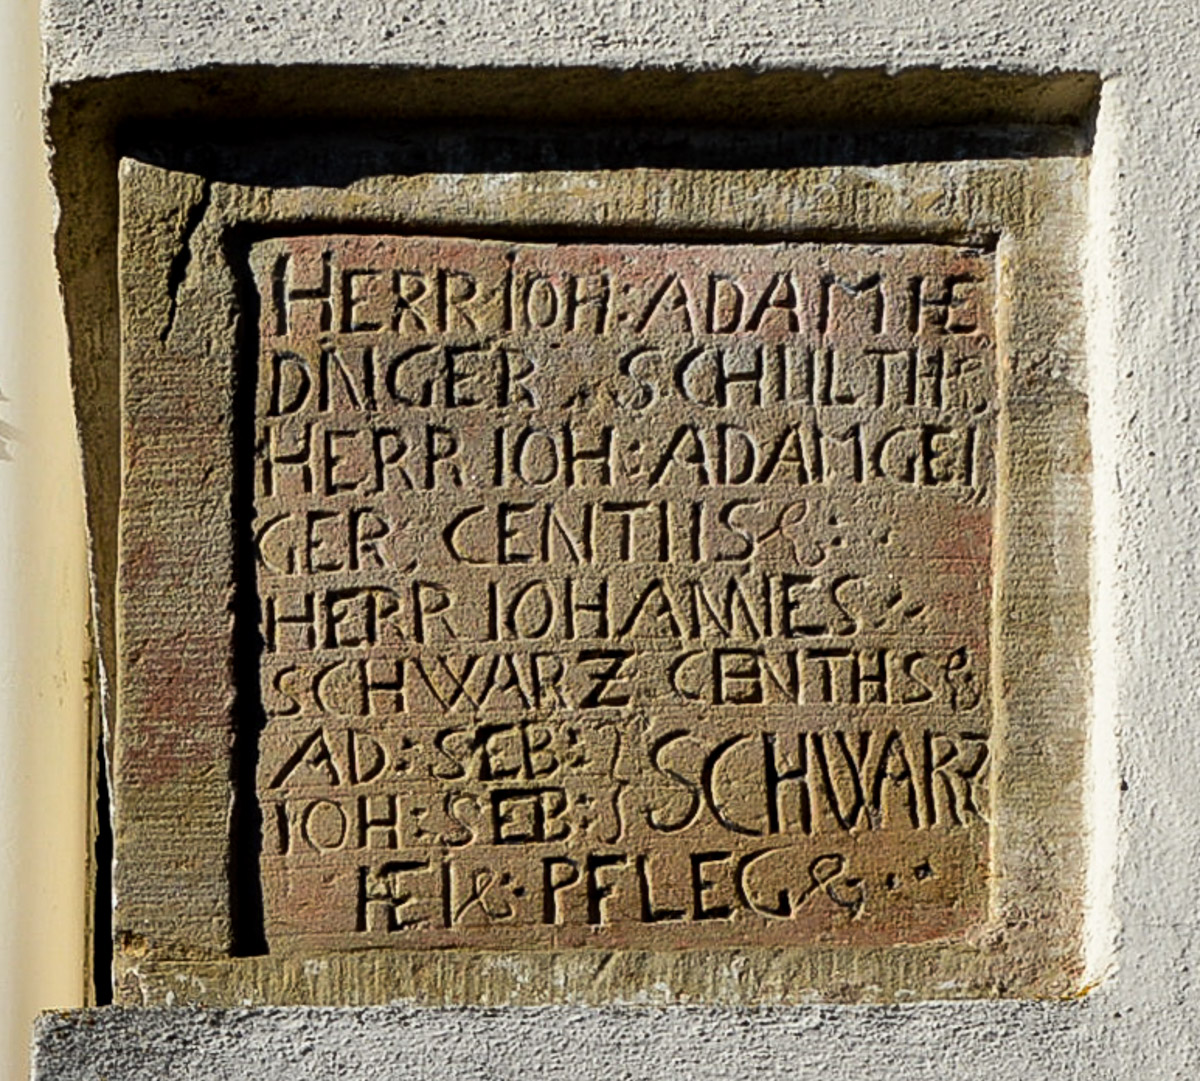 HERR IOH: ADAM HE
DNGER SCHULTH:
HERR IOH: ADAM GEI
GER CENTHS &:
HERR IOHANNES
SCHWARZ CENTHS &
AD: SEB: } SCHWARZ
IOH: SEB: }
HEI &: PFLEG &